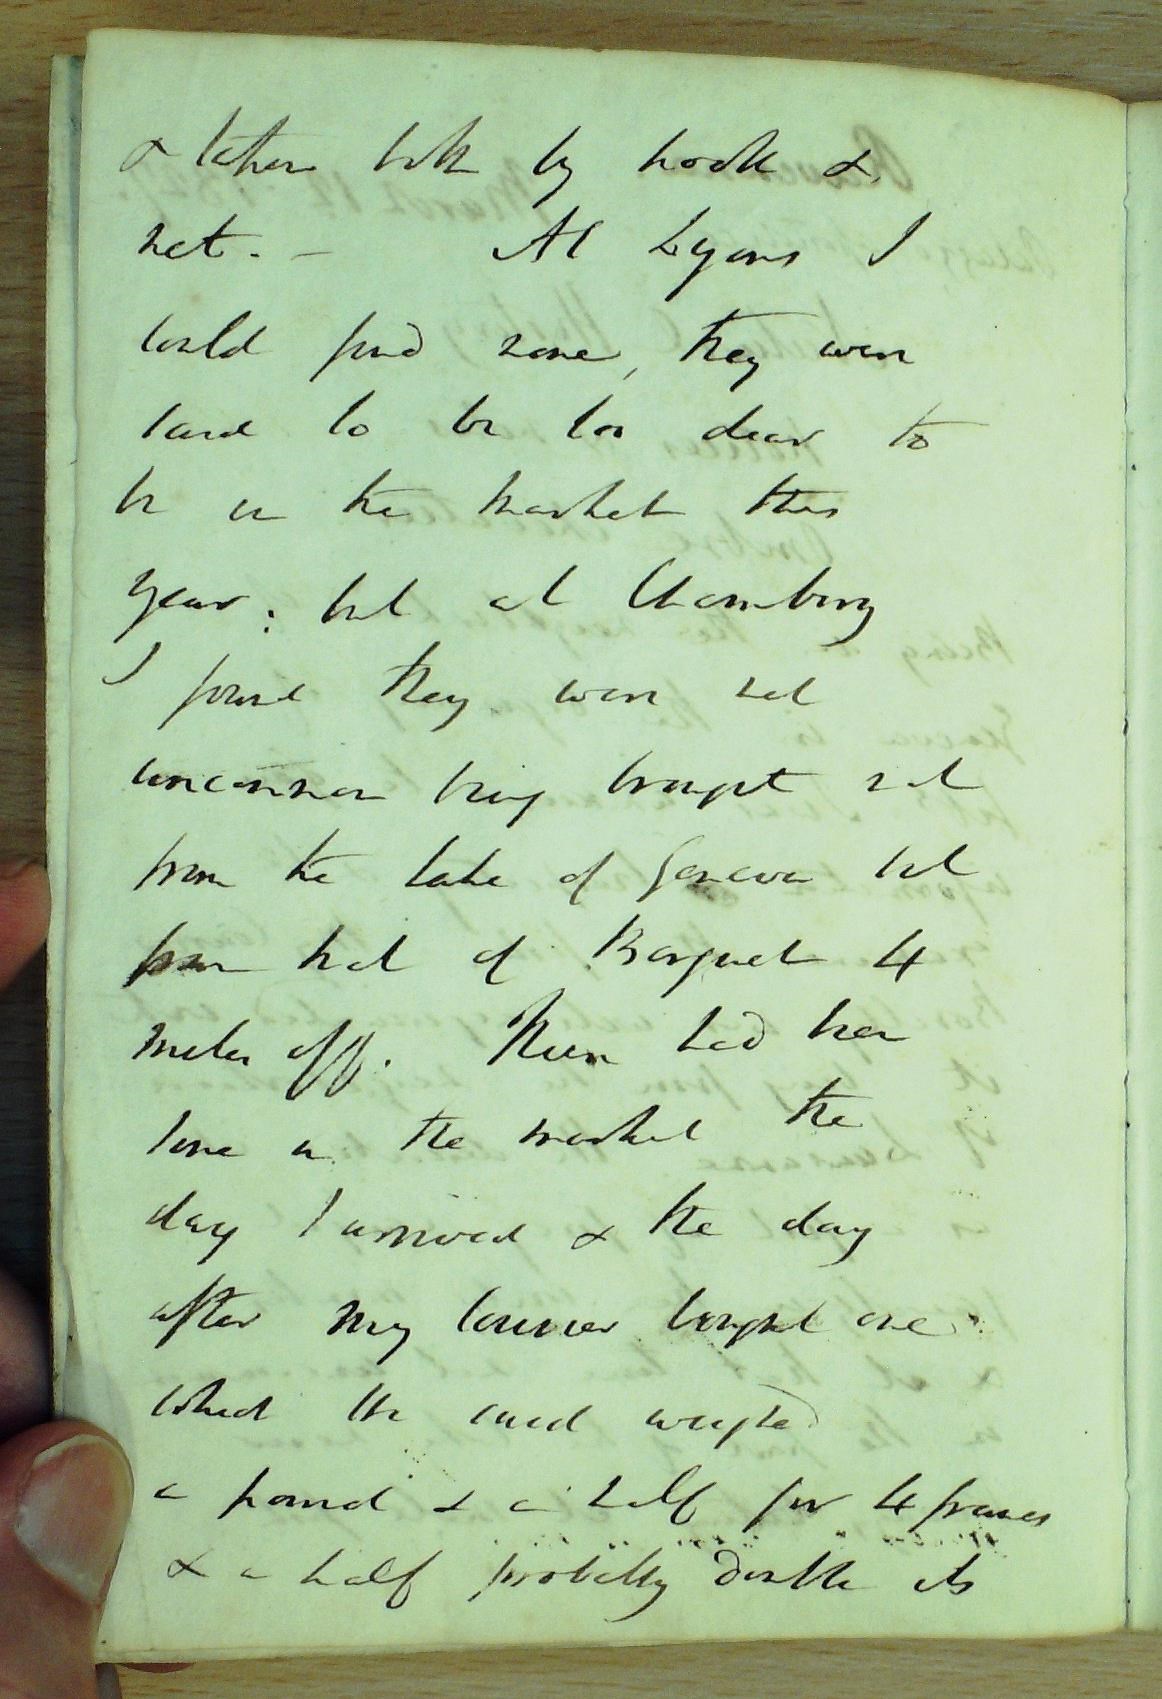 & taken both by hook &
net. - At Lyons I
could find none, they were
said to be too dear to
be in the market this
year: but at Chambery
I found they were not
uncommon being brought not
from the Lake of Geneva but
from that of Bourget 4
miles off. There had been
some in the market the
day I arrived & the day
after my courier bought one
which he said weighed
a pound & a half for 4 francs
& a half probably double its